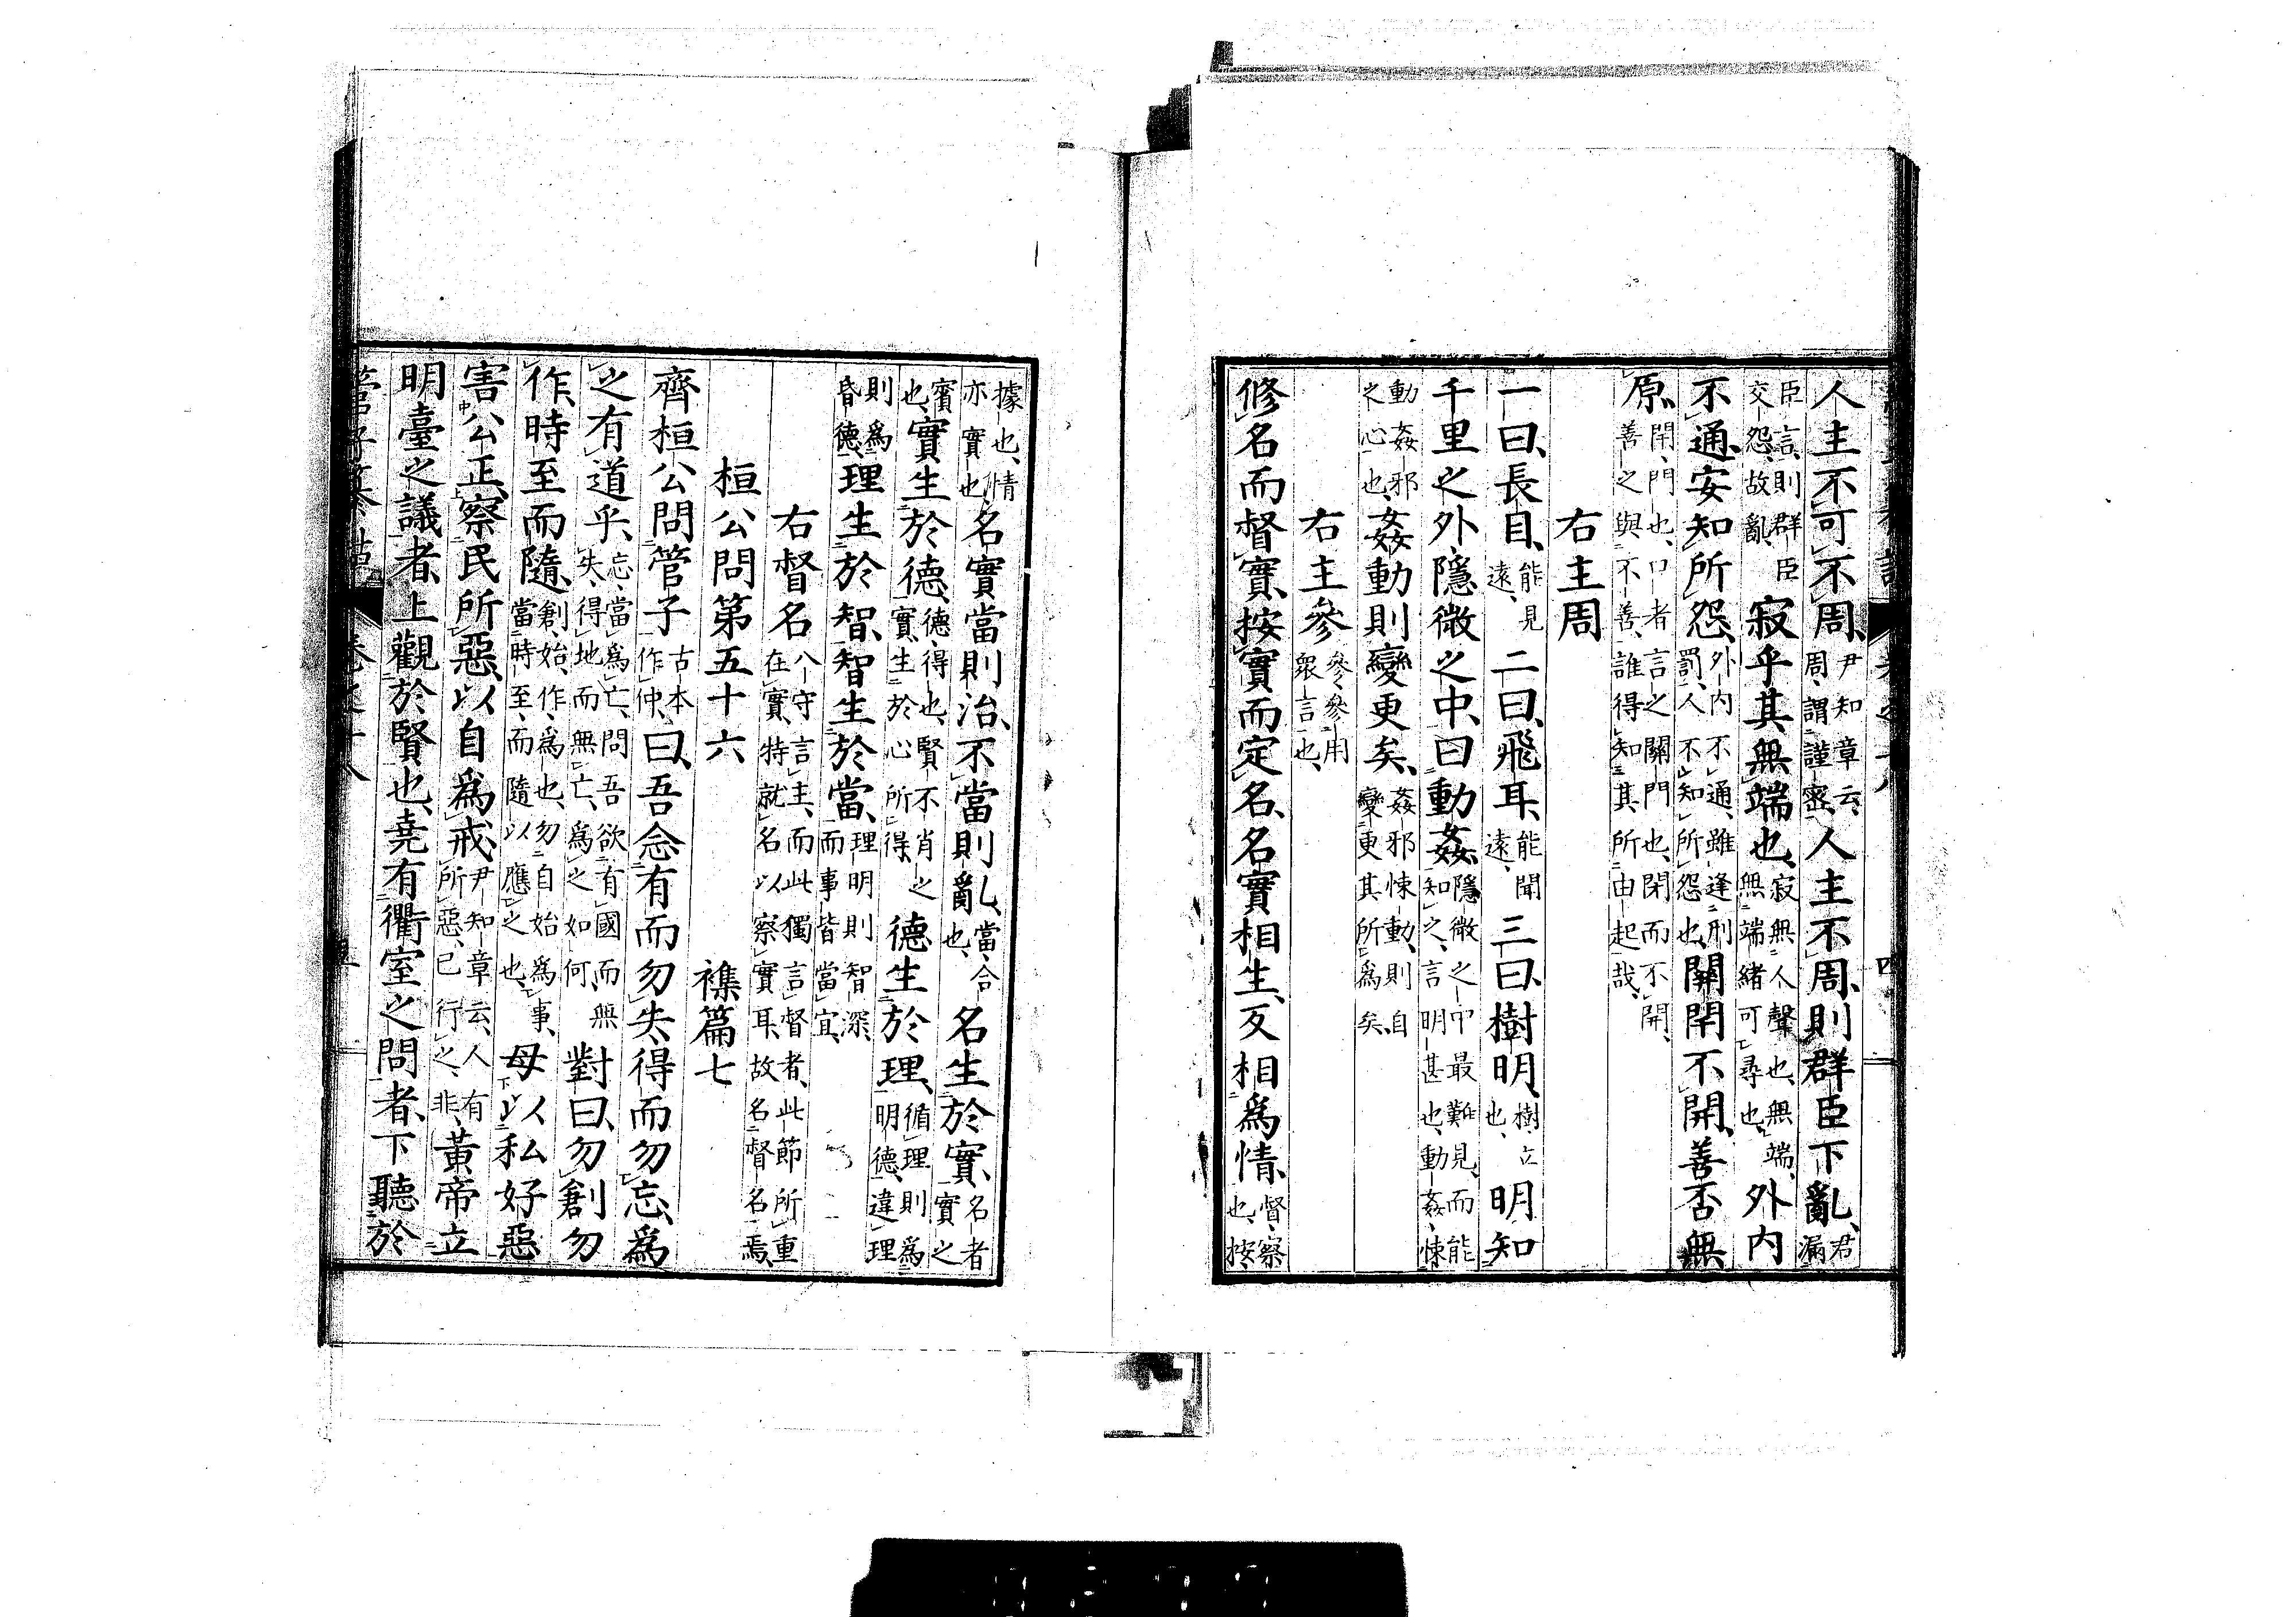 人主不可不周、尹知章云、周、謂謹密、人主不周、則群臣下亂、君漏
臣言、則群臣交怨、故亂、寂乎其無端也、寂無人聲也、無端、無端緒可尋也、外內
不通、安知所怨、外內不通、雖逢刑罰、人不知所怨也、關閈不開、善否無
原、閈、門也、口者言之關門也、閉而不開、善之與不善、誰得知其所由起哉、
右主周
一曰、長目、能見遠、二曰、飛耳、能聞遠、三曰、樹明、樹、立也、明知
千里之外、隱微之中、曰動姦、隱微之中最難見、而能知之、言明甚也、動姦、悚
動姦邪之心也、姦動則變更矣、姦邪悚動、則自變更其所為矣
右主參參參用眾言也、
修名而督實、按實而定名、名實相生、反相為情、督、察也、按、
據也、情亦實也、名實當則治、不當則亂、當、合也、名生於實、名者實之
賓也、實生於德、德、得也、賢不肖之實、生於心所得、德生於理、循理則為明德、違理
則為昏德、理生於智、智生於當、理明則智深、而事皆當宜、
右督名八守言主、而此獨言督者、此節所重在實、特就名以察實耳、故名督名焉、
桓公問第五十六　襍篇七
齊桓公問管子古本作仲、曰、吾念有而勿失、得而勿忘、為
之有道乎、忘、當為亡、問吾欲有國而無失、得地而無亡、為之如何、對曰、勿創勿
作、時至而隨、創、始、作、為也、勿自始為事、當時至、而隨以應之也、毋以私好惡
害公正、察民所惡、以自為戒、尹知章云、人有所惡、已行之、非、黃帝立
明臺之議者、上觀於賢也、堯有衢室之問者、下聽於